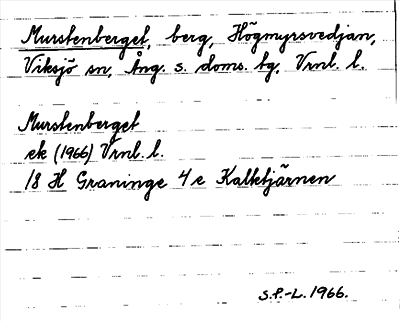 Murstenberget, berg, Högmyrsvedjan,
Viksjö sn, Ång. s. doms. tg, Vrnl. l.
Murstenberget
ek (1966) Vrnl. l.
18 H Graninge 4 e Kalktjärnen
S.P.-L. 1966.